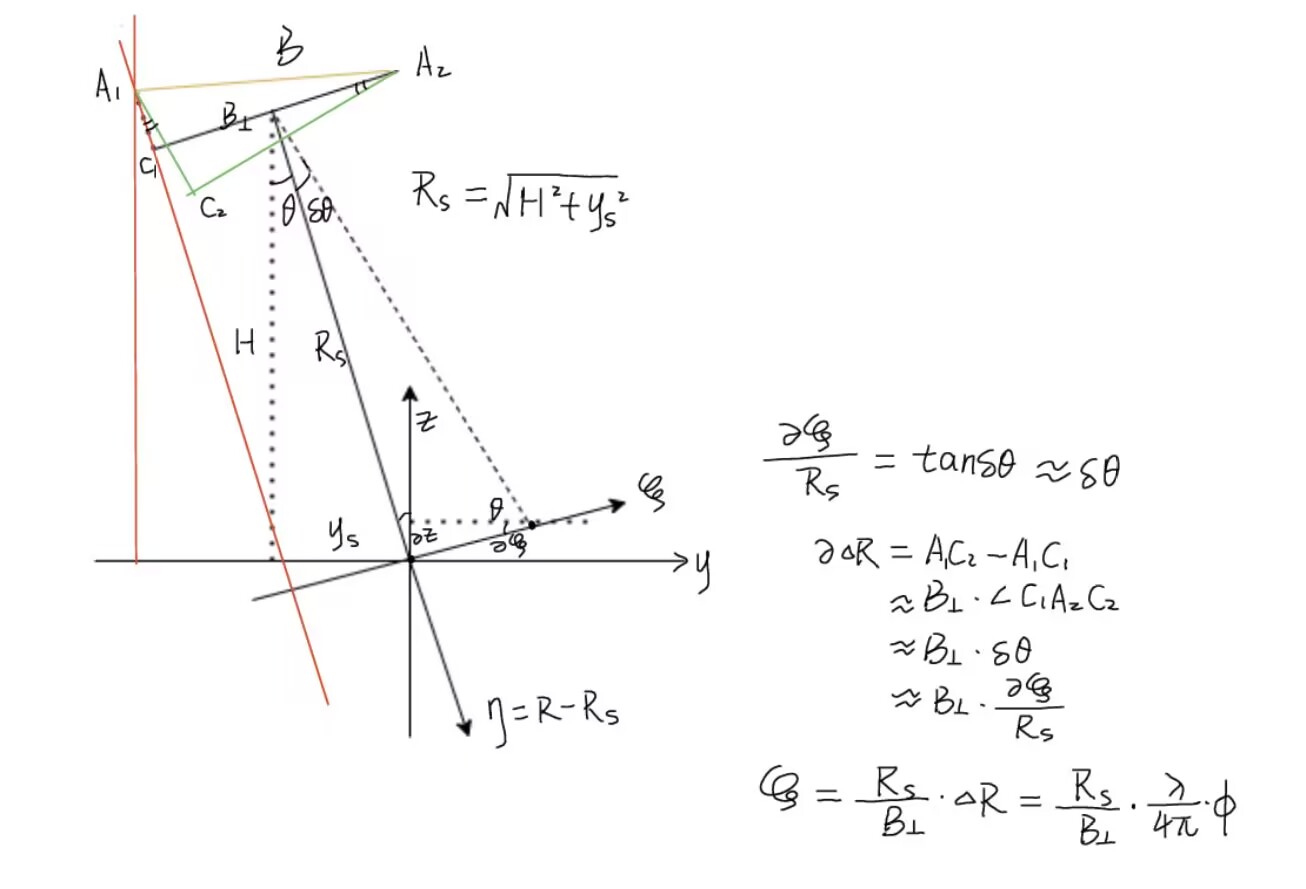 B
A₂
A₁
B⊥
C₁
C₂
θ δθ
Rₛ = √(H² + yₛ²)
H
Rₛ
z
ξ
θ
yₛ
∂z
∂ξ
y
η = R - Rₛ
∂ξ/Rₛ = tanδθ ≈ δθ
∂ΔR = A₁C₂ - A₁C₁
≈ B⊥ · ∠C₁A₂C₂
≈ B⊥ · δθ
≈ B⊥ · ∂ξ/Rₛ
ξ = Rₛ/B⊥ · ΔR = Rₛ/B⊥ · λ/4π · ϕ